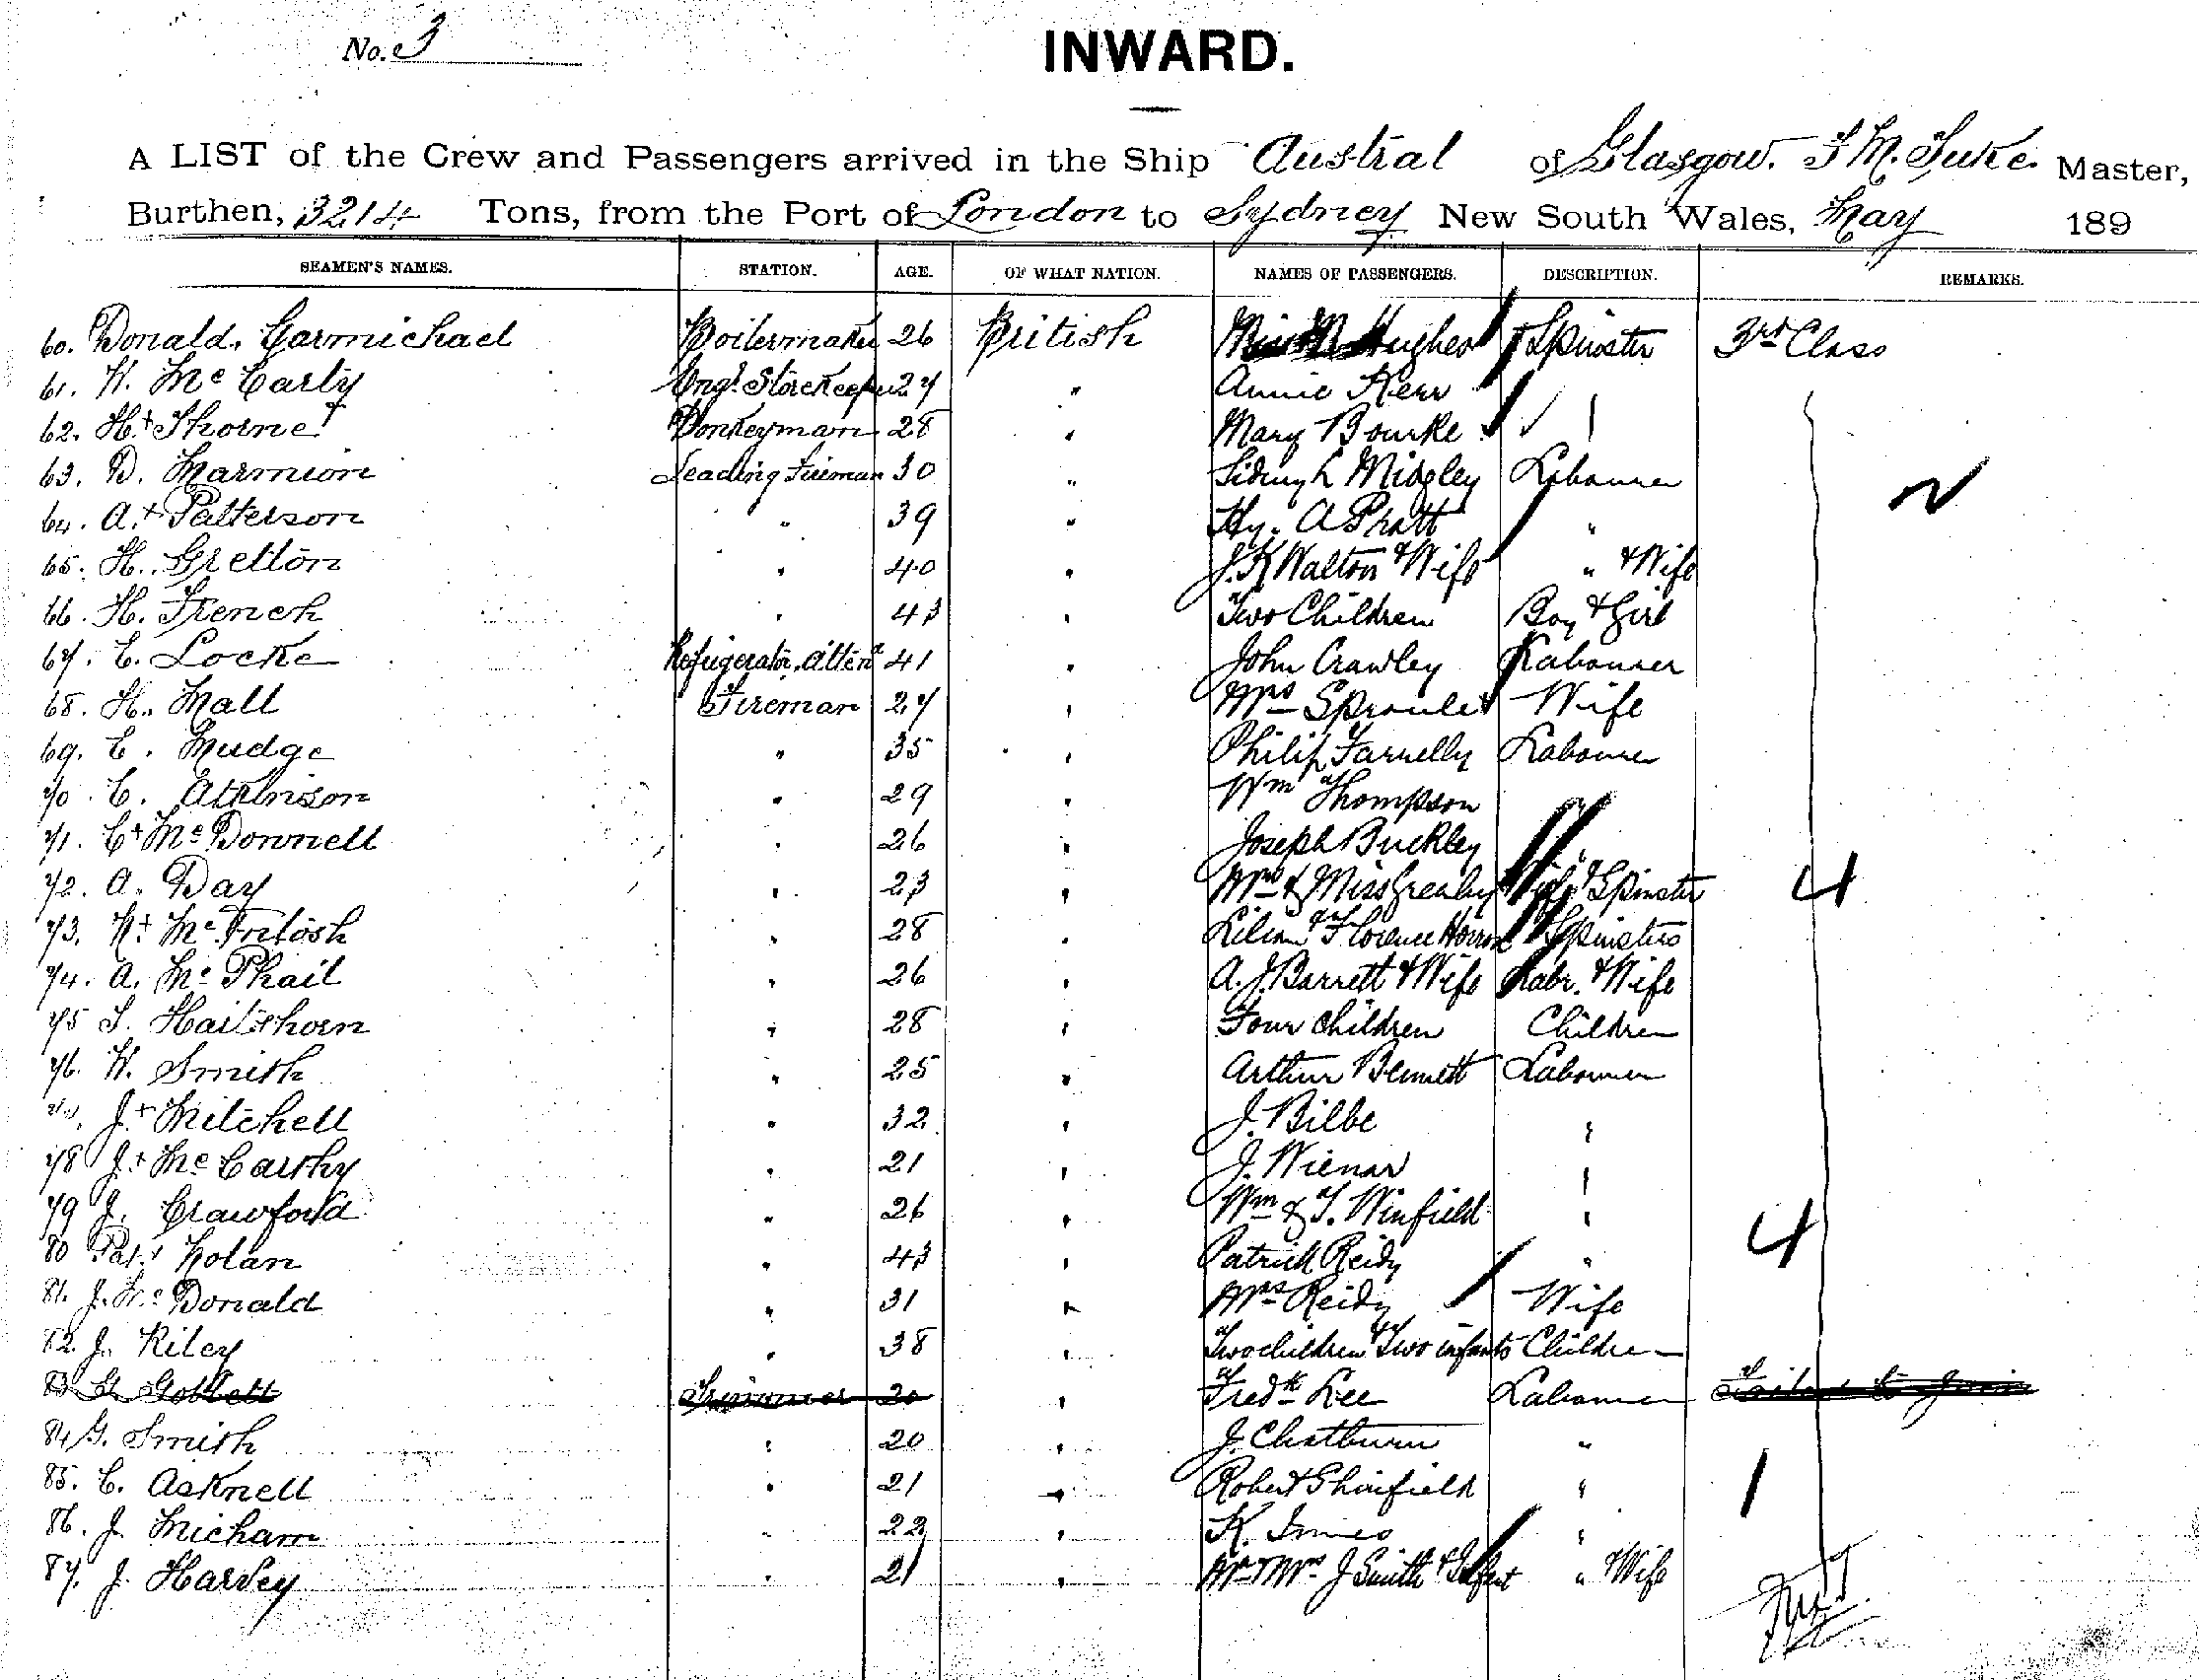 No. 3
INWARD.
A LIST of the Crew and Passengers arrived in the Ship Austral of Glasgow. Master,
Burthen, 3214 Tons, from the Port of London to Sydney New South Wales, May 189
SEAMEN'S NAMES. STATION. AGE. OF WHAT NATION. NAMES OF PASSENGERS. DESCRIPTION. REMARKS.
60. Donald Carmichael Boilermaker 26 British Miss Hughes Spinster 3rd Class
61. Mc Carty Engr. Storekeeper 27 " Annie Kerr
62. H. Thorne Donkeyman 28 " Mary Bourke
63. D. Marmion Leading Fireman 30 " Sidney L Midgley Labourer
64. A. Patterson " 39 " Hy. A Pratt "
65. H. Gretton " 40 " J. K Walton & Wife " & Wife
66. H. French " 43 " Two Children Boy & Girl
67. C. Locke Refrigerator Attent 41 " John Crawley Labourer
68. H. Mall Fireman 27 " Mrs Wife
69. E. Mudge " 35 " Philip Farrelly Labourer
70. C. Atkinson " 29 " Wm Thompson
71. C. Mc Donnell " 26 " Joseph Buckley "
72. A. Day " 23 " Mrs & Miss Wife & Spinster 4
73. Mc Intosh " 28 " Lilian & Florence Spinsters
74. A. Mc Phail " 26 " A. J. Barrett & Wife Labr. & Wife
75 Haithorn " 28 " Four children Children
76. W. Smith " 25 " Arthur Bennett Labourer
77. J. Mitchell " 32 " J. Bilbe "
78 J. Mc Carthy " 21 " J. Wienar "
79 J. Crawford " 26 " Wm & T. Winfield "
80 Pat. Nolan " 43 " Patrick Reidy " 4
81. J. Mc Donald " 31 " Mrs Reidy Wife
82. J. Riley " 38 " Two children & Two infants Children
83 G. Gobbett Trimmer 20 " Fredk Lee Labourer Failed to join
84 G. Smith " 20 " J. Chatburn "
85. C. Asknell " 21 " Robert Shinfield " 1
86. J. Micham " 22 " K. Innes "
87. J. Harvey " 21 " Mr & Mrs J Smith & Infant " & Wife